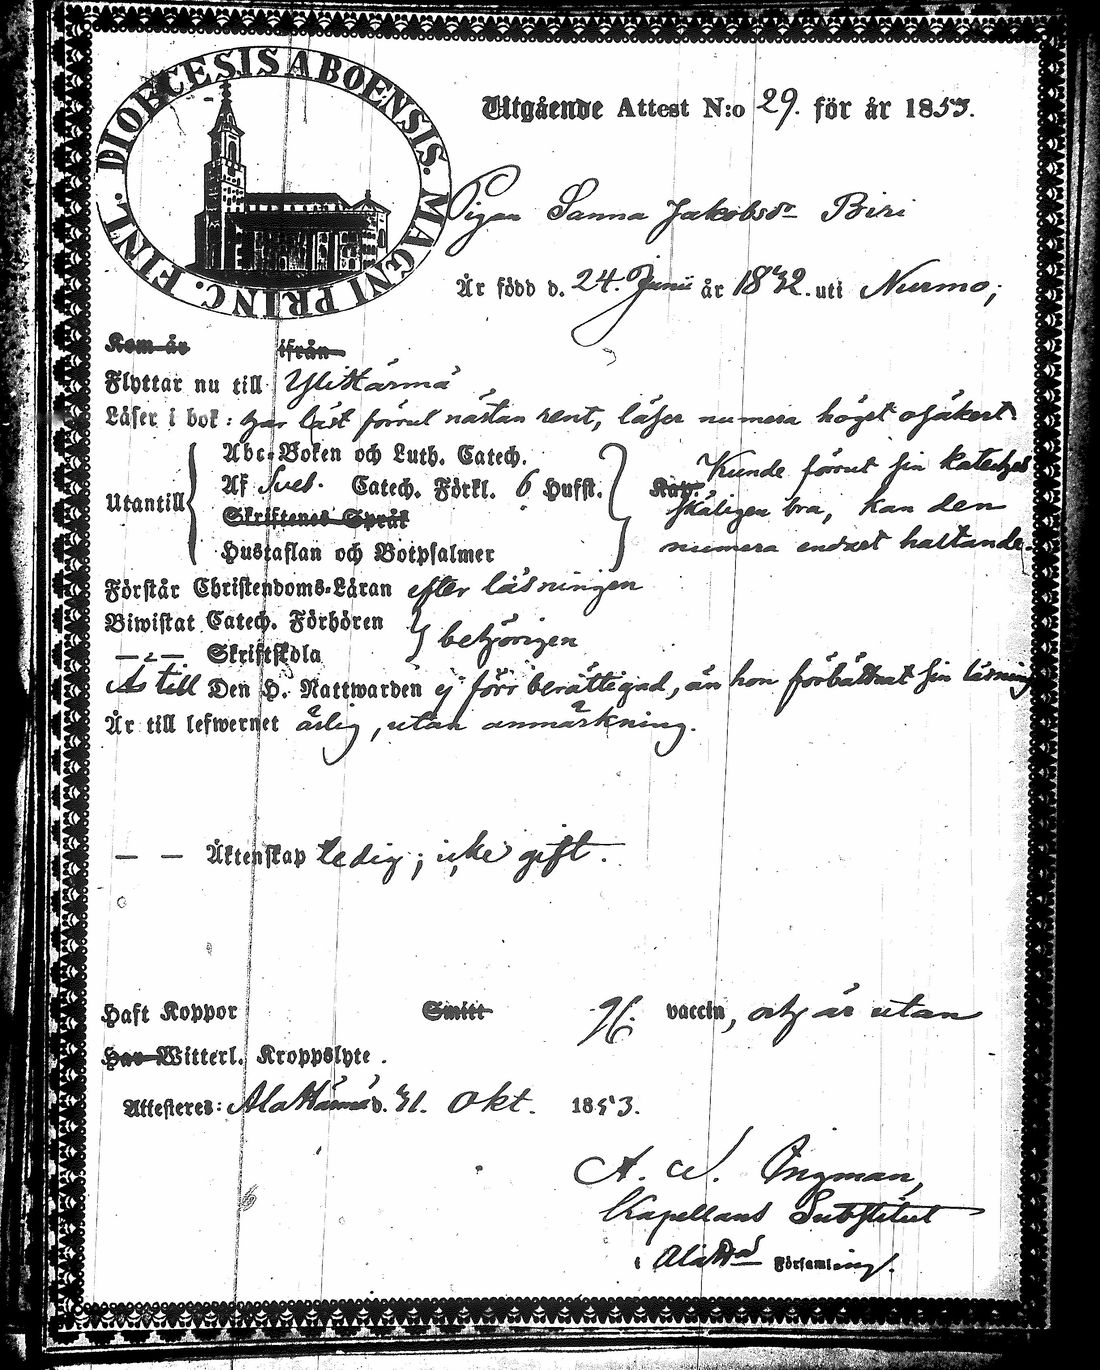 DIOECESIS ABOENSIS. MAGNI PRINC. FINL.
Utgående Attest N:o 29. för år 1853.
Pigan Sanna Jakobsdr Biri
Är född d. 24. Junii år 1832. uti Nurmo;
Kom år ifrån
Flyttar nu till YliHärmä
Läser i bok: har läst förrut nästan rent, läser numera högst osäkert.
Utantill
Abc-Boken och Luth. Catech.
Af Sveb. Catech. Förkl. 6 Hufst.
Skriftenes Språk
Hustaflan och Botpsalmer
Kunde förrut sin kateches
skäligen bra, kan den
numera endast haltande.
Förstår Christendoms-Läran efter läsningen
Biwistat Catech. Förhören
— „ — Skriftskola
behörigen
Äs till Den H. Nattwarden ej förr berättigad, än hon förbättrat sin läsning
Är till lefwernet ärlig, utan anmärkning.
— — Äktenskap ledig; icke gift.
Haft Koppor Smitt H. vaccin, och är utan
Har Witterl. Kroppslyte.
Attesteres: AlaHärmä d. 31. Okt. 1853.
A. W. Ingman,
Kapellans Substitut
i AlaHmä Församling.